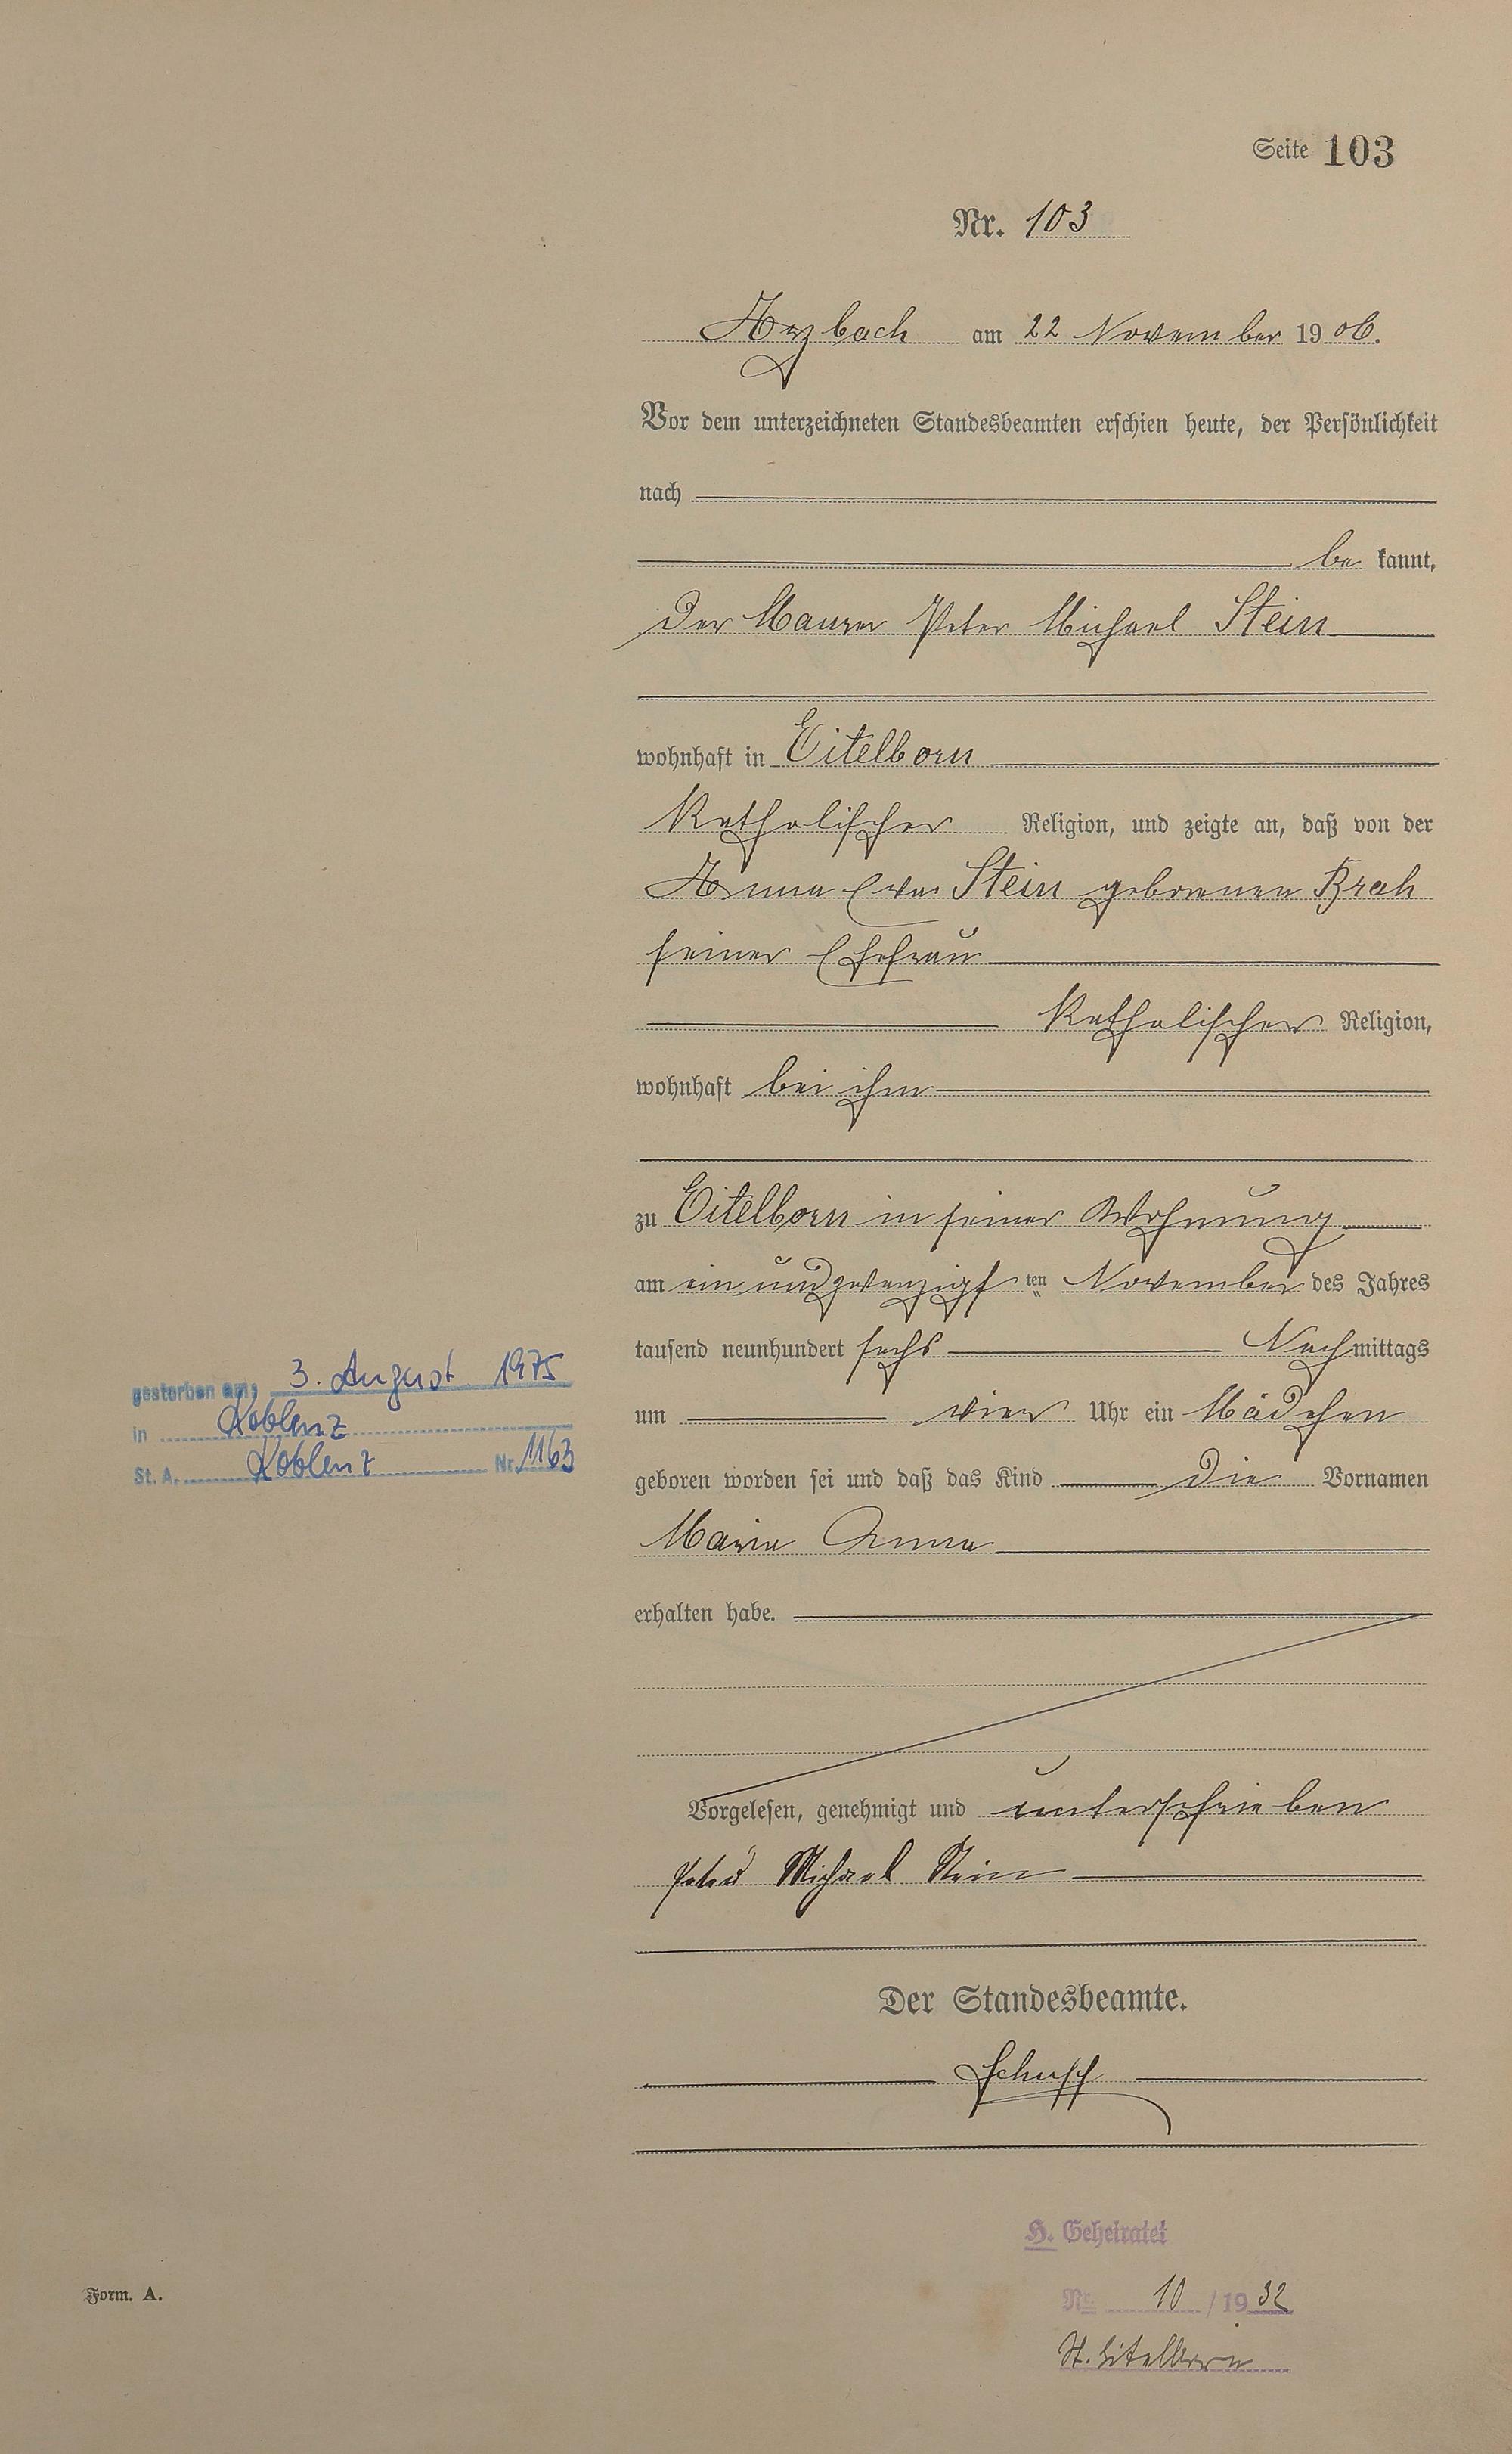 Seite 103
Nr. 103
Arzbach am 22 November 1906.
Vor dem unterzeichneten Standesbeamten erschien heute, der Persönlichkeit
nach
be kannt,
der Maurer Peter Michael Stein
wohnhaft in Eitelborn
katholischer Religion, und zeigte an, daß von der
Anna Eva Stein geborenen Brah
seiner Ehefrau
katholischer Religion,
wohnhaft bei ihm
zu Eitelborn in seiner Wohnung
am ein und zwanzigsten November des Jahres
tausend neunhundert sechs Nachmittags
um vier Uhr ein Mädchen
geboren worden sei und daß das Kind die Vornamen
Maria Anna
erhalten habe.
Vorgelesen, genehmigt und unterschrieben
Peter Michael Stein
Der Standesbeamte.
gestorben am: 3. August 1975
in Koblenz
St. A. Koblenz Nr. 1163
H. Geheiratet
Nr. 10 / 1932
St. Eitelborn
Form. A.